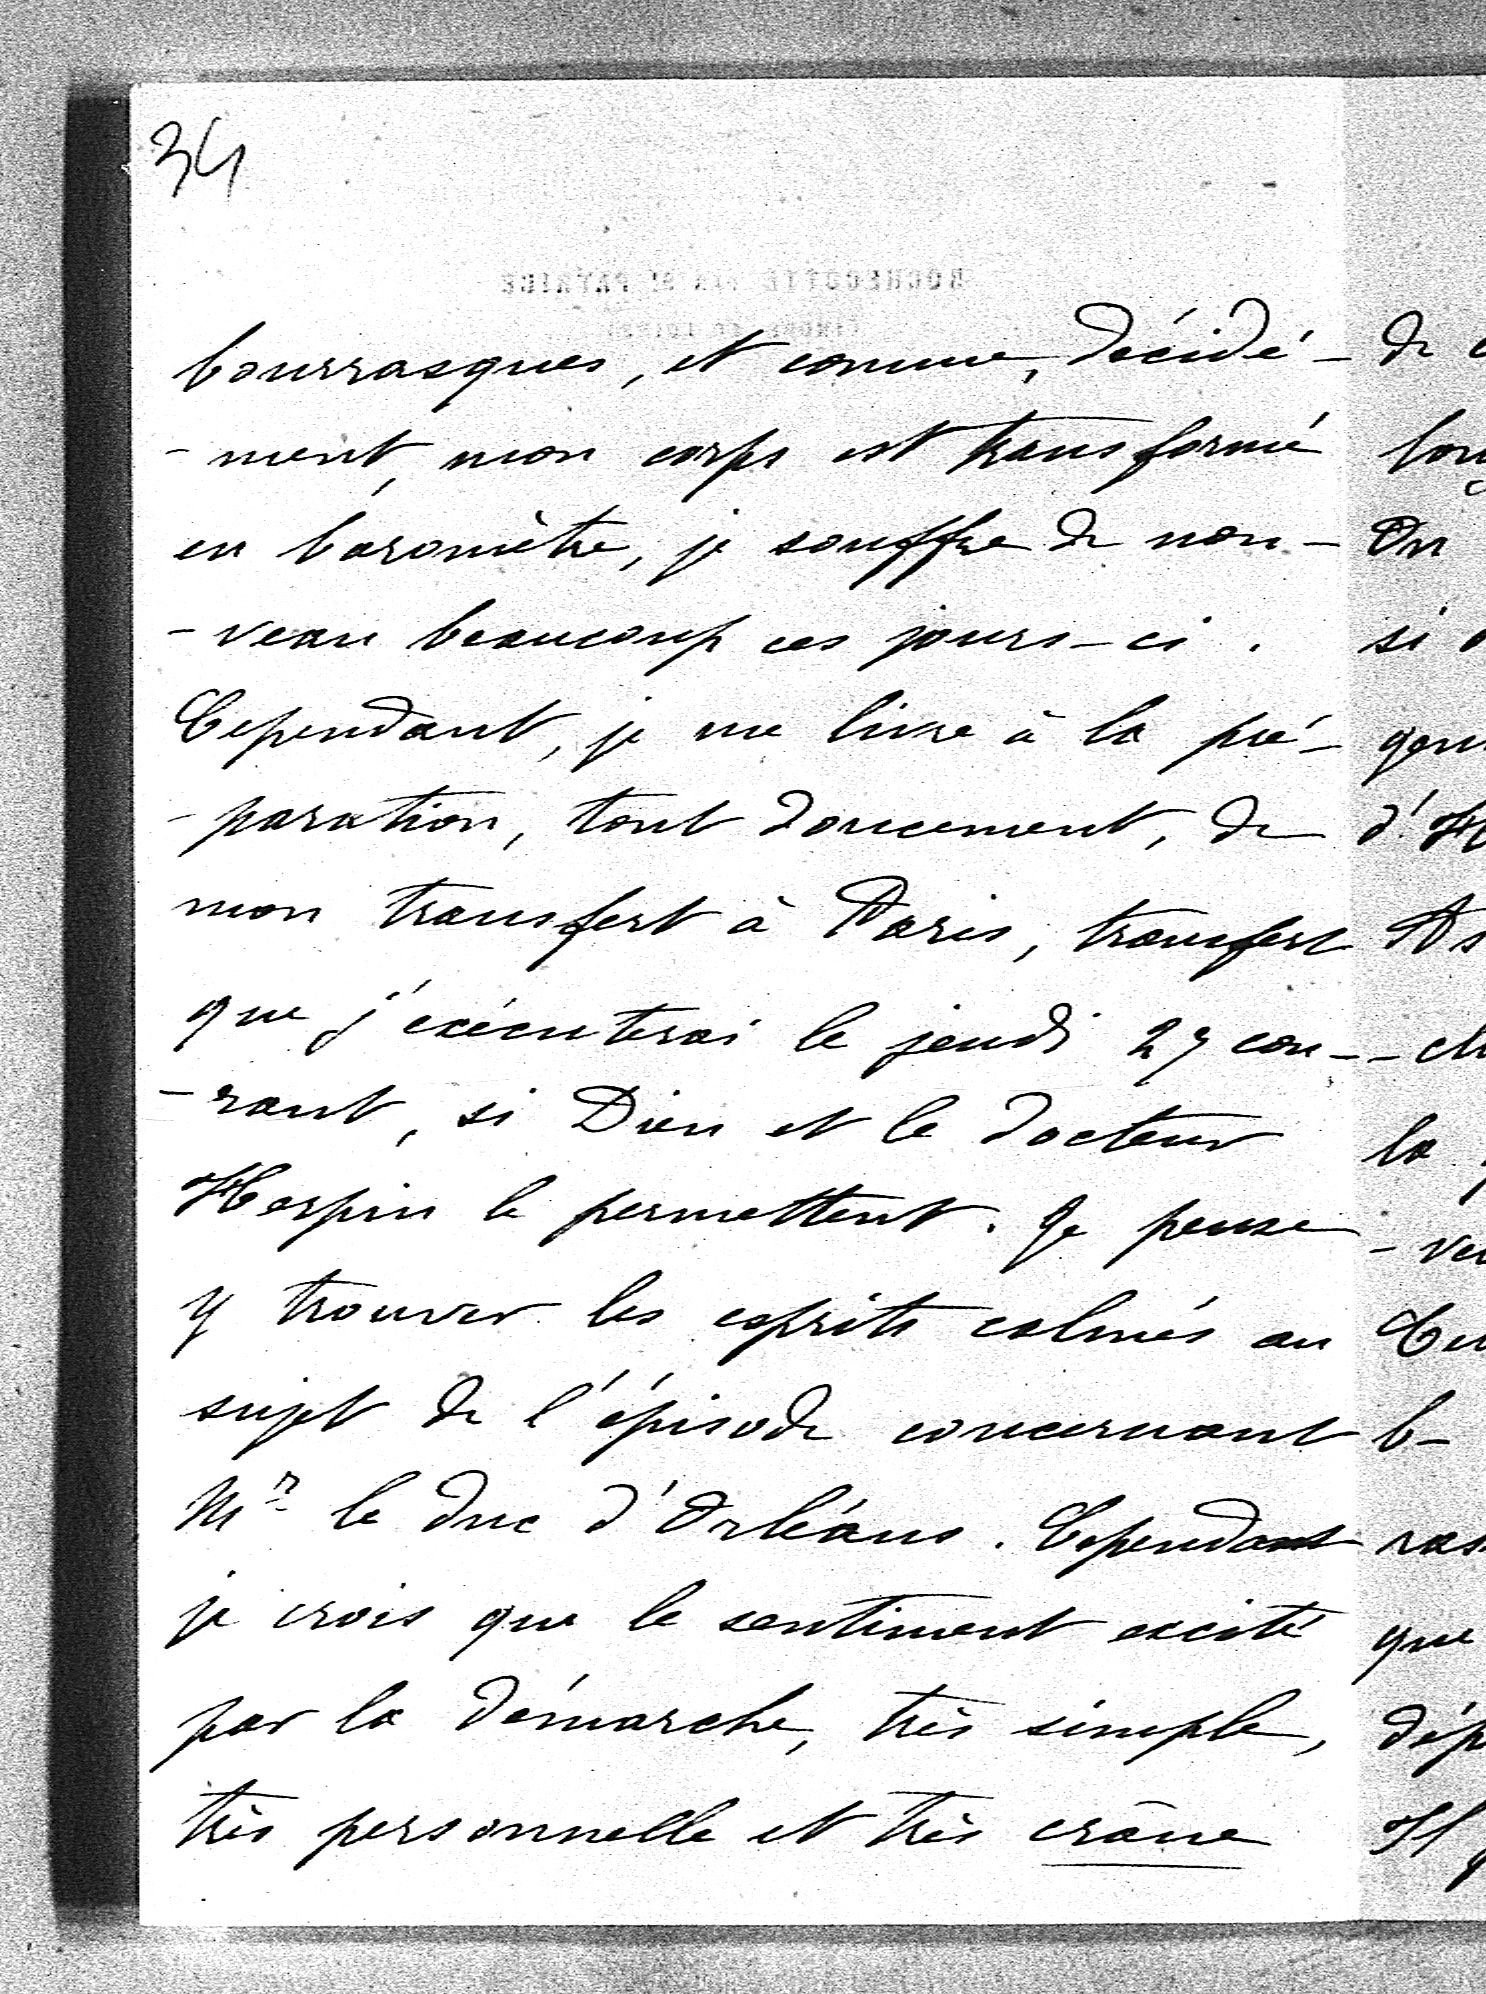 34
bourrasques, et comme, décidé-
-ment, mon corps est transformé
en baromètre, je souffre de nou-
-veau beaucoup ces jours-ci.
Cependant, je me livre à la pré-
-paration, tout doucement, de
mon transfert à Paris, transfert
que j'exécuterai le jeudi 27 cou-
-rant, si Dieu et le docteur
Herpin le permettent. Je pense
y trouver les esprits calmés au
sujet de l'épisode concernant
Mr le duc d'Orléans. Cependant
je crois que le sentiment excité
par la démarche, très simple,
très personnelle et très crâne